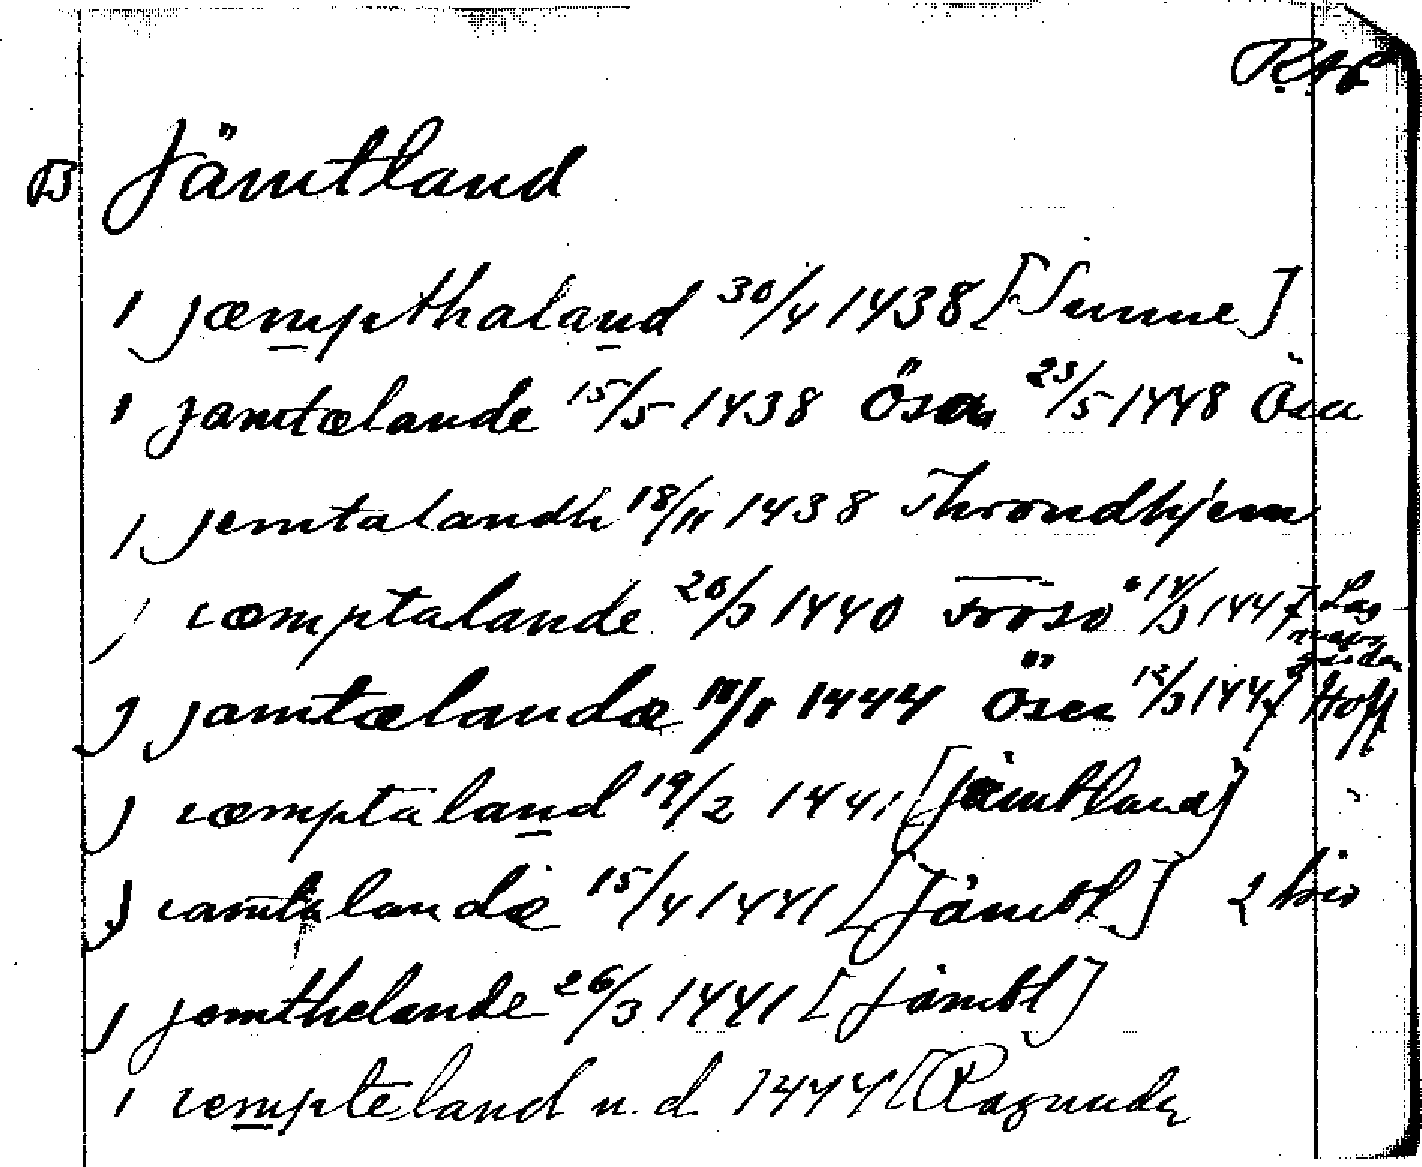 B Jämtland
j jæmpthaland 30/4 1438 [Sunne]
j jamtælande 15/5 1438 Ösa 23/5 1448 Ösa
j jemtalandh 18/11 1438 Throndhjem
j iæmptalande 20/3 1440 Frösö 14/3 1447
j jamtælandæ 11/1 1444 Ösa 12/3 1447 Hoff
j iæmptaland 19/2 1441 [Jämtland]
j iamtalandæ 15/4 1441 [Jämtl] 2 brev
j jemthelande 26/3 1441 [Jämtl]
j iempteland u. d. 1444 [Ragunda